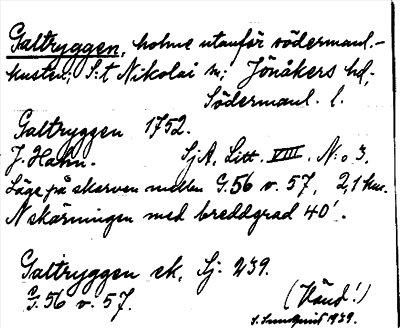 Galtryggen, holme utanför södermanl.-
kusten; S:t Nikolai sn; Jönåkers hd,
Södermanl. l.
Galtryggen 1752.
J. Hahn. SjA, Litt. VIII. N:o 3.
Läge på skarven mellan G.56 o. 57, 2,1 km.
N skärningen med breddgrad 40'.
Galtryggen sk, Sj: 239.
G. 56 o. 57.
(Vänd!)
S. Sundquist 1939.